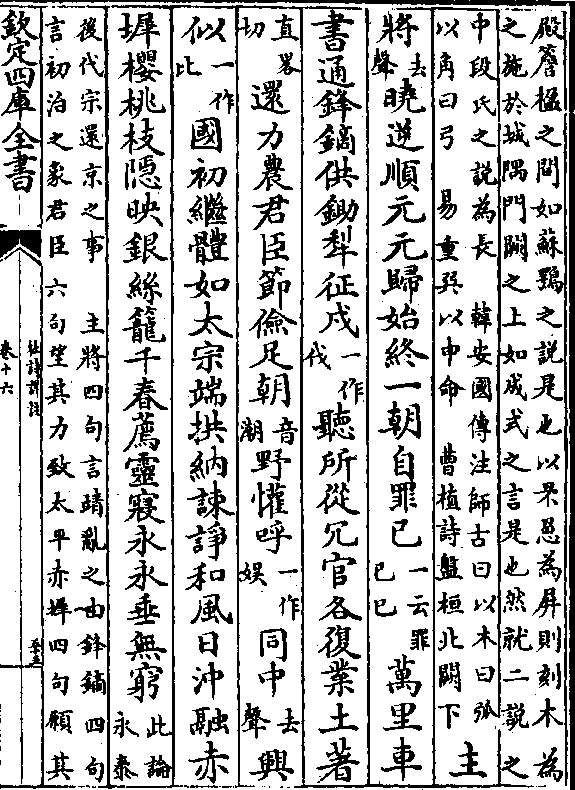 殿簷楹之間如蘇鶚之說是也以罘罳為屏則刻木為
之施於城隅門闕之上如成式之言是也然就二說之
中段氏之說為長　韓安國傳注師古曰以木曰弧
以角曰弓　易重巽以申命　曹植詩盤桓北闕下　主
將去聲曉逆順元元歸始終一朝自罪已一云罪已已萬里車
書通鋒鏑供鋤犁征戍一作伐聽所從冗官各復業土著
直畧切還力農君臣節儉足朝音潮野懽呼一作娛同中去聲興
似一作比國初繼體如太宗端拱納諫諍和風日沖融赤
墀櫻桃枝隱映銀絲籠千春薦靈寢永永垂無窮此論永泰
後代宗還京之事　主將四句言靖亂之由鋒鏑四句
言初治之象君臣六句望其力致太平赤墀四句願其
欽定四庫全書
杜詩詳註
卷十六